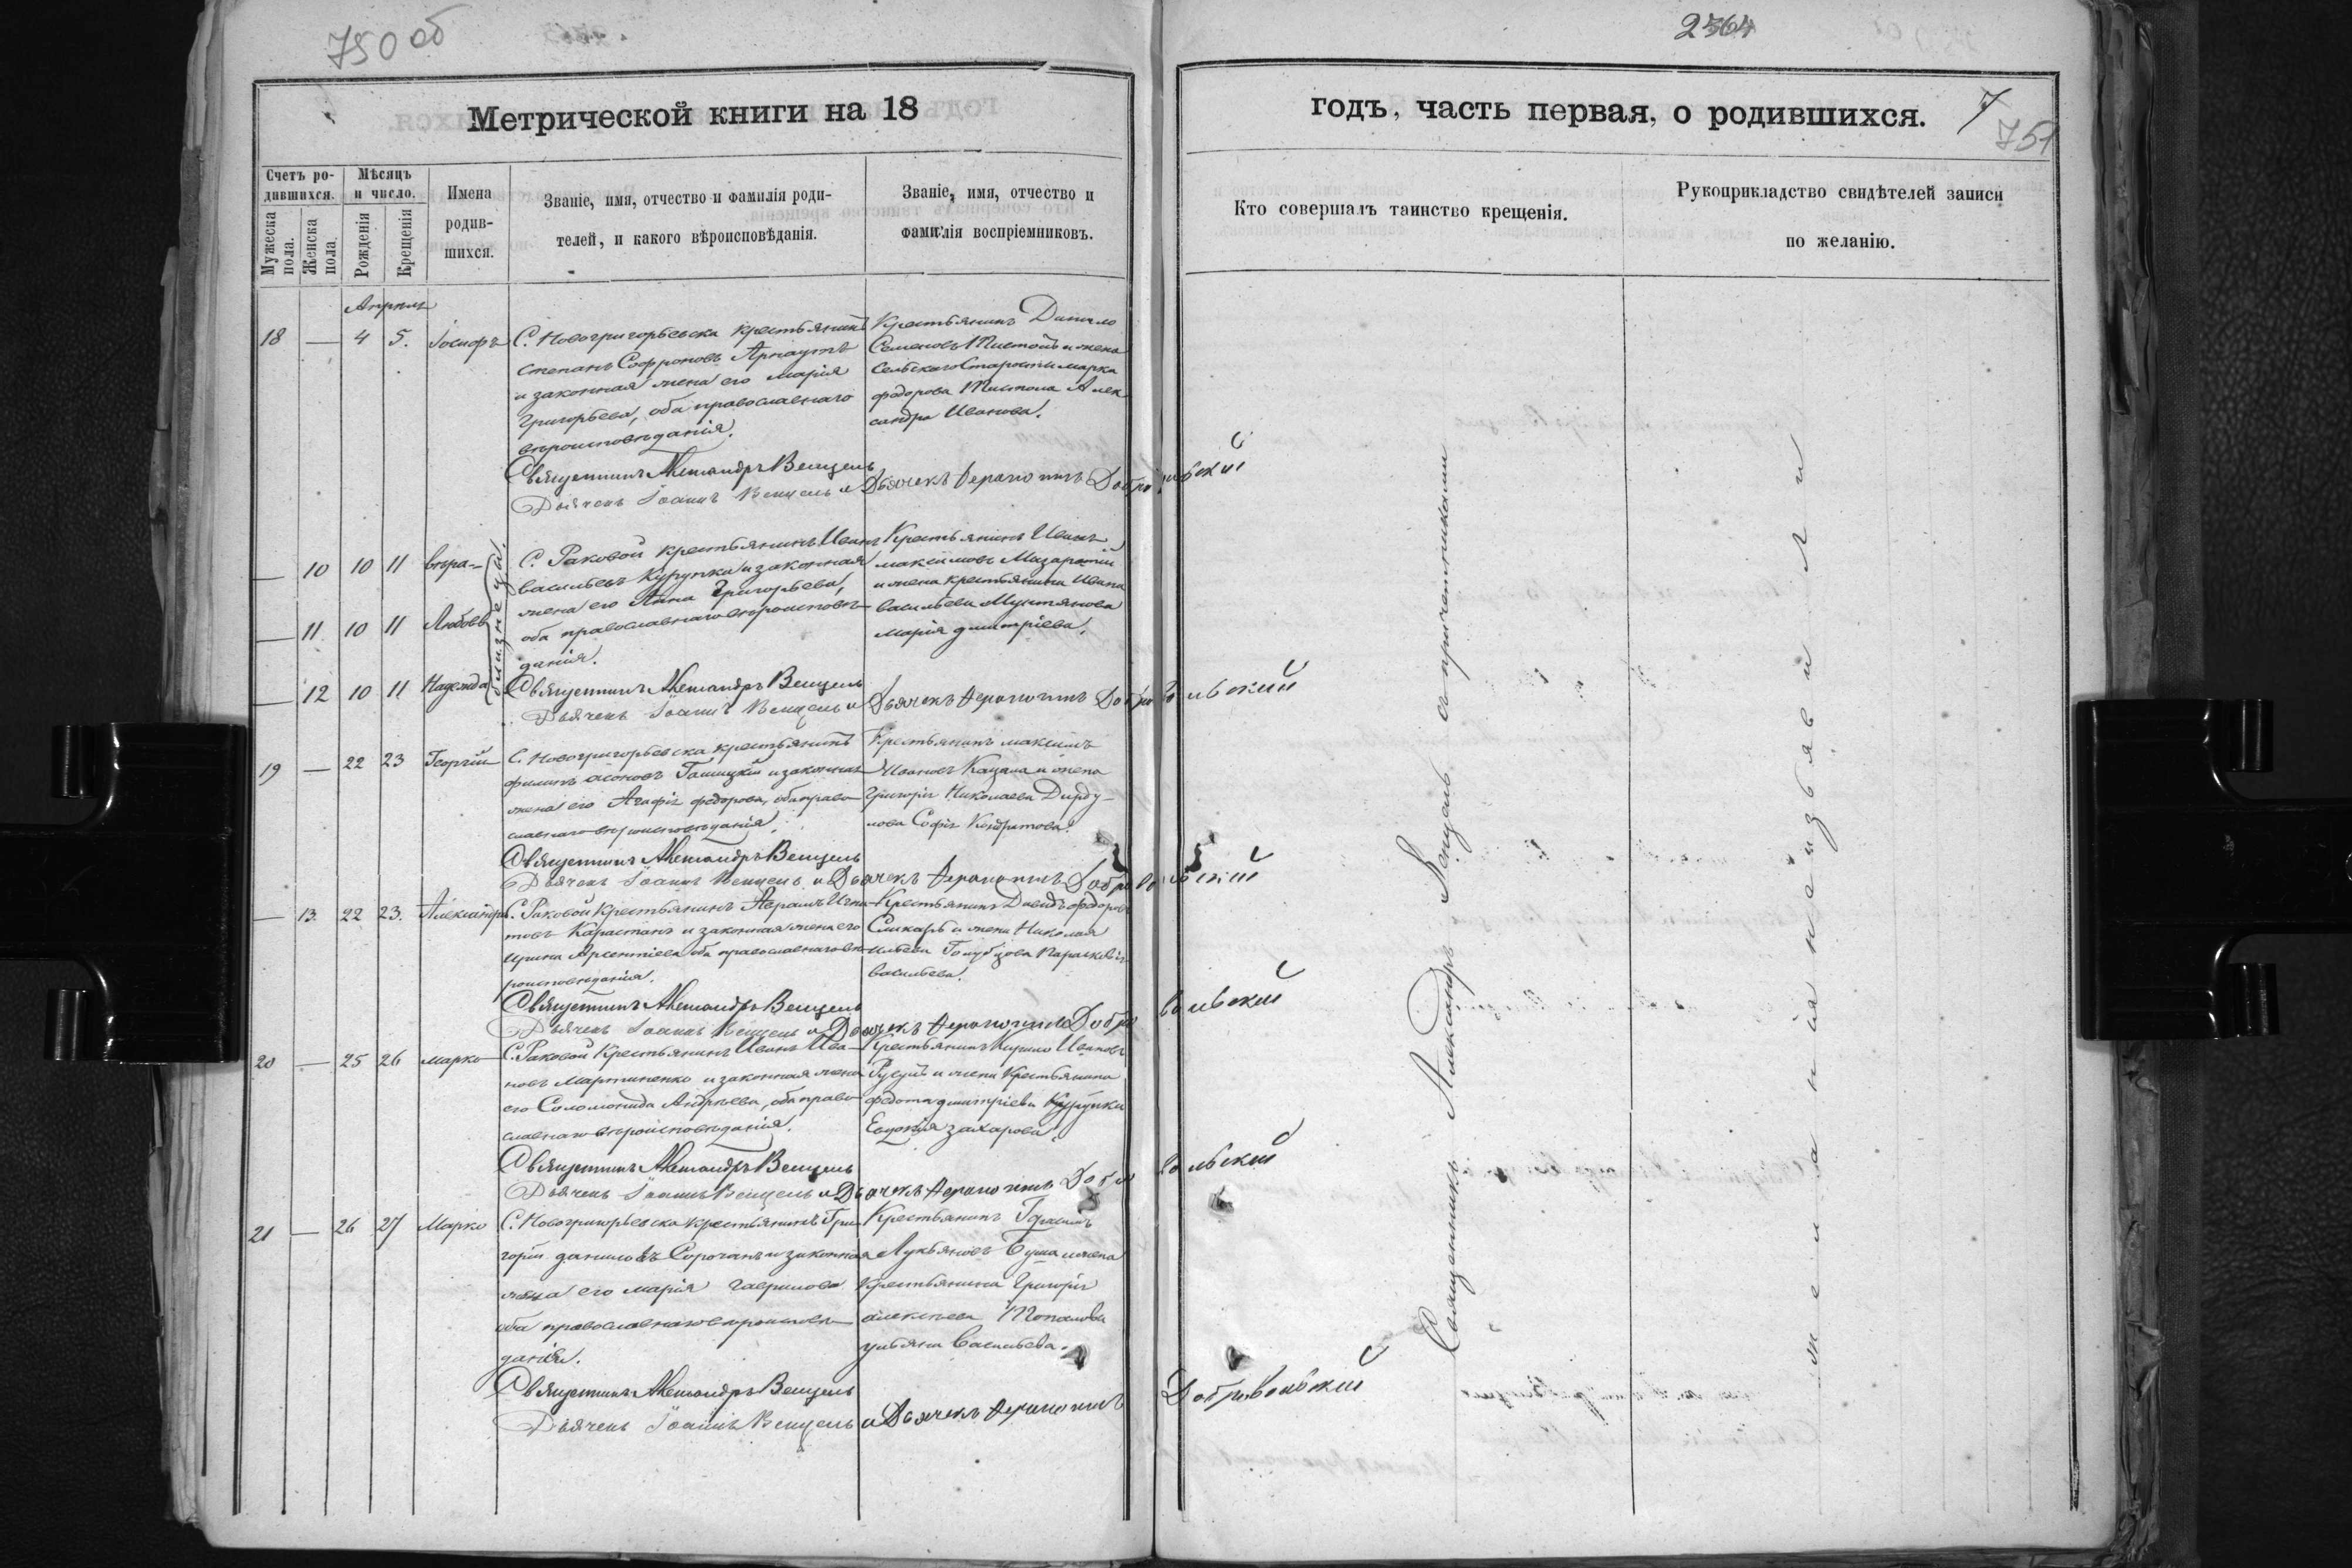 750 об
2564
Метрической книги на 18
годъ, часть первая, о родившихся.
7
751
Счетъ ро-
дившихся.
Мѣсяцъ
и число.
Мужеска
пола.
Женска
пола.
Рожденія
Крещенія
Имена
родив-
шихся.
Званіе, имя, отчество и фамилія роди-
телей, и какого вѣроисповѣданія.
Званіе, имя, отчество и
фамилія воспріемниковъ.
Кто совершалъ таинство крещенія.
Рукоприкладство свидѣтелей записи
по желанію.
Апрель
18 — 4 5. Іосифъ
С. Новогригорьевска крестьянинъ
Степанъ Софроновъ Арнаутъ
и законная жена его Марія
Григорьева, оба православнаго
вѣроисповѣданія.
Крестьянинъ Данило
Семеновъ и жена
Сельскаго Старосты Марка
Федорова Алек
сандра Иванова.
Священникъ Александръ Венцель
Дьячекъ Іоаннъ Венцель и Дьячекъ Добровольский
— 10 10 11 Вѣра
— 11 10 11 Любовь
— 12 10 11 Надежда
близнецы.
С. Раковой крестьянинъ Иванъ
Васильевъ Курупка и законная
жена его Анна Григорьева,
оба православнаго вѣроисповѣ
данія.
Крестьянинъ Иванъ
Максимовъ
и жена крестьянина Ивана
Васильева Мунтянова
Марія Димитріева.
Священникъ Александръ Венцель
Дьячекъ Іоаннъ Венцель и Дьячекъ Добровольский
19 — 22 23 Георгій
С. Новогригорьевска крестьянинъ
Филипъ и законная
жена его Агафія Федорова, оба право
славнаго вѣроисповѣданія.
Крестьянинъ Максимъ
Ивановъ Кацала и жена
Григорія Николаева Дырду-
лова Софія Кондратова.
Священникъ Александръ Венцель
Дьячекъ Іоаннъ Венцель и Дьячекъ Добровольский
— 13 22 23. Александра
С. Раковой Крестьянинъ Аврамъ Игна
товъ Карастанъ и законная жена его
Ирина Арсентіева оба православнаго вѣ
роисповѣданія.
Крестьянинъ Давидъ Федоровъ
и жена Николая
Ильева Голубцова Параскевія
Васильева.
Священникъ Александръ Венцель
Дьячекъ Іоаннъ Венцель и Дьячекъ Добровольский
20 — 25 26 Марко
С. Раковой Крестьянинъ Иванъ Ива
новъ Мартиненко и законная жена
его Соломонида Андреева, оба право
славнаго вѣроисповѣданія.
Крестьянинъ Кирило Ивановъ
и жена Крестьянина
Федота Димитріева Курупки
Евдокія Захарова.
Священникъ Александръ Венцель
Дьячекъ Іоаннъ Венцель и Дьячекъ Добровольский
21 — 26 27 Марко
С. Новогригорьевска крестьянинъ Гри
горій Даниловъ Сорочанъ и законная
жена его Марія Гаврилова
оба православнаго вѣроисповѣ
данія.
Крестьянинъ Герасимъ
Лукьяновъ и жена
Крестьянина Григорія
Алексѣева
Ульяна Васильева.
Священникъ Александръ Венцель
Дьячекъ Іоаннъ Венцель и Дьячекъ Добровольский
Священникъ Александръ Венцель съ причетниками
желанія не изъявили